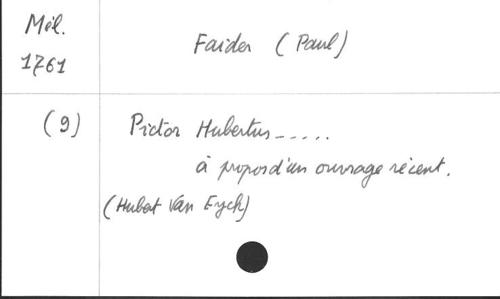 Mél.
1761
Faider (Paul)
(9)
Pictor Hubertus-----.
à propos d'un ouvrage récent.
(Hubert Van Eyck)